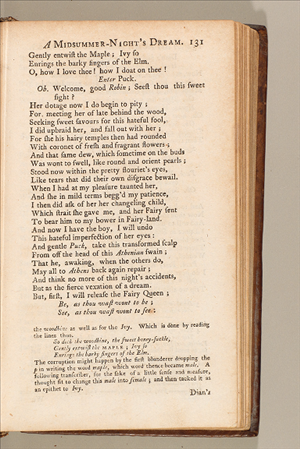 A MIDSUMMER-NIGHT'S DREAM. 131
Gently entwist the Maple; Ivy so
Enrings the barky fingers of the Elm.
O, how I love thee! how I doat on thee!
Enter Puck.
Ob. Welcome, good Robin; Seest thou this sweet
sight?
Her dotage now I do begin to pity;
For, meeting her of late behind the wood,
Seeking sweet savours for this hateful fool,
I did upbraid her, and fall out with her;
For she his hairy temples then had rounded
With coronet of fresh and fragrant flowers;
And that same dew, which sometime on the buds
Was wont to swell, like round and orient pearls;
Stood now within the pretty flouriet's eyes,
Like tears that did their own disgrace bewail.
When I had at my pleasure taunted her,
And she in mild terms begg'd my patience,
I then did ask of her her changeling child,
Which strait she gave me, and her Fairy sent
To bear him to my bower in Fairy-land.
And now I have the boy, I will undo
This hateful imperfection of her eyes:
And gentle Puck, take this transformed scalp
From off the head of this Athenian swain;
That he, awaking, when the others do,
May all to Athens back again repair;
And think no more of this night's accidents,
But as the fierce vexation of a dream.
But, first, I will release the Fairy Queen;
Be, as thou wast wont to be;
See, as thou wast wont to see:
the woodbine as well as for the Ivy. Which is done by reading
the lines thus,
So doth the woodbine, the sweet honey-suckle,
Gently entwist the MAPLE; Ivy so
Enrings the barky fingers of the Elm.
The corruption might happen by the first blunderer dropping the
p in writing the word maple, which word thence became male. A
following transcriber, for the sake of a little sense and measure,
thought fit to change this male into female; and then tacked it as
an epithet to Ivy.
Dian's